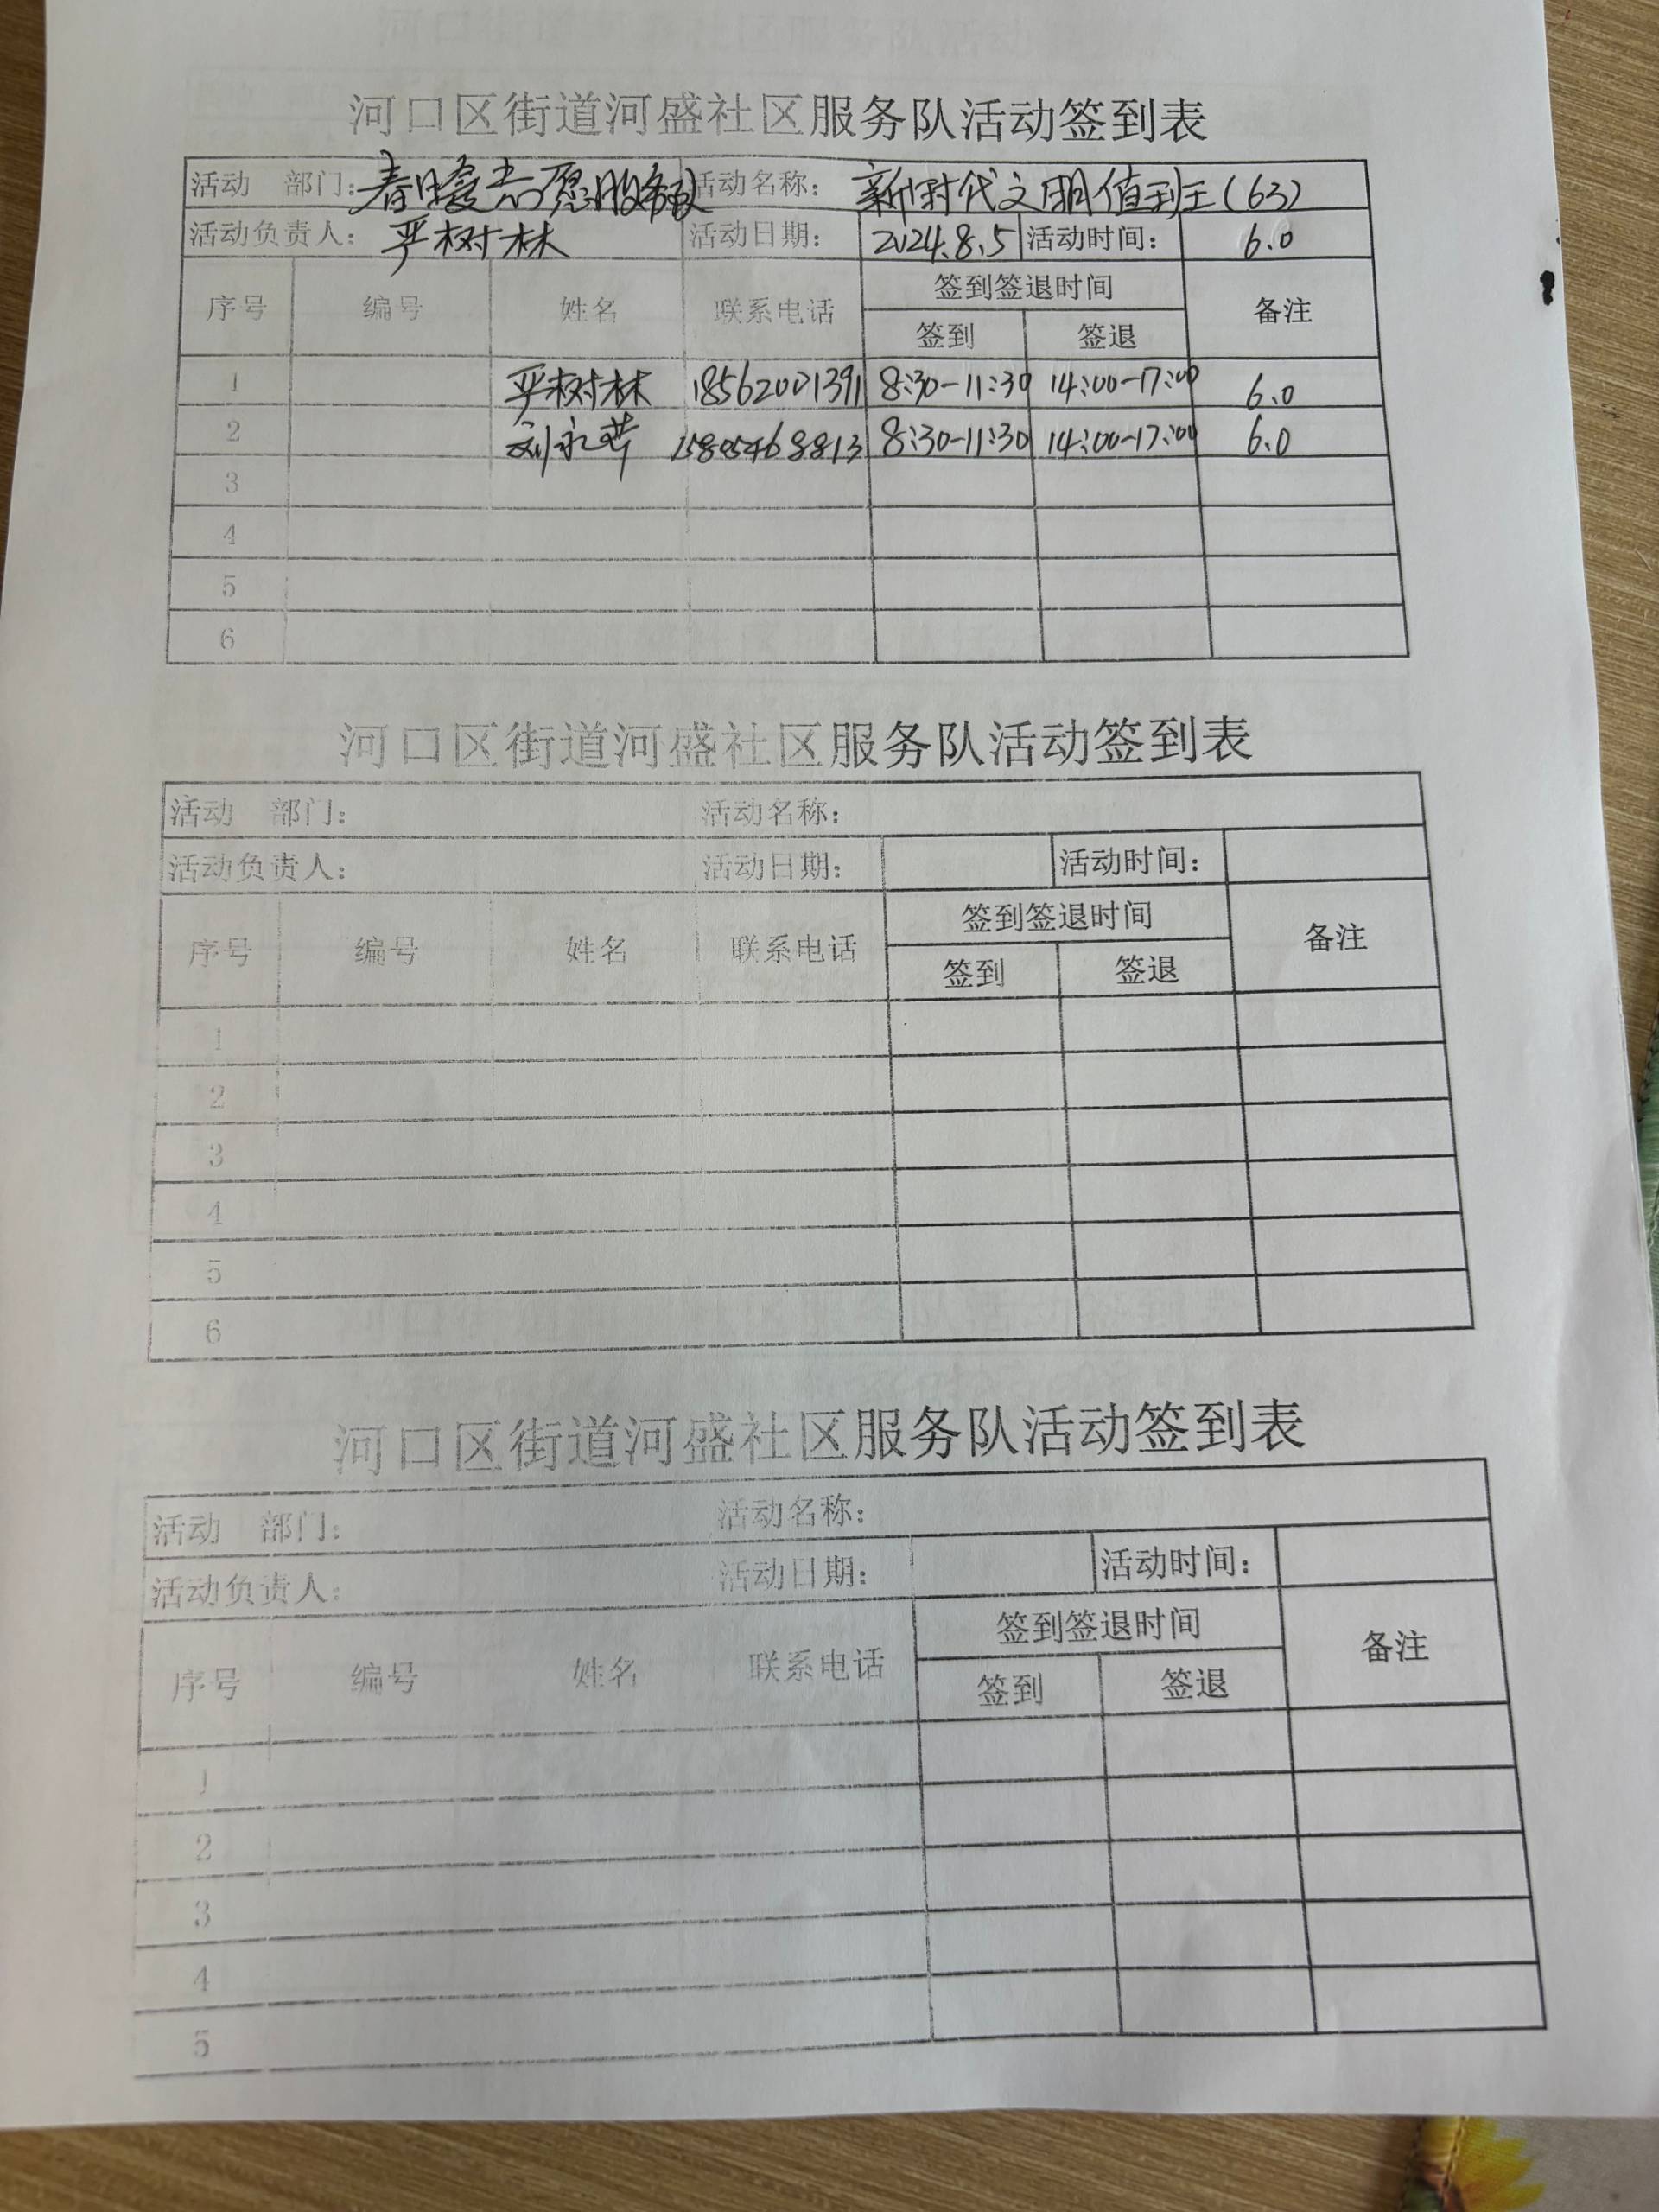 河口区街道河盛社区服务队活动签到表
活动 部门：春暖志愿服务队 活动名称： 新时代文明值班(63)
活动负责人： 严树林 活动日期： 2024.8.5 活动时间： 6.0
序号 编号 姓名 联系电话 签到签退时间 备注
签到 签退
1 严树林 18562001391 8:30-11:30 14:00-17:00 6.0
2 15805468813 8:30-11:30 14:00-17:00 6.0
3
4
5
6
河口区街道河盛社区服务队活动签到表
活动 部门： 活动名称：
活动负责人： 活动日期： 活动时间：
序号 编号 姓名 联系电话 签到签退时间 备注
签到 签退
1
2
3
4
5
6
河口区街道河盛社区服务队活动签到表
活动 部门： 活动名称：
活动负责人： 活动日期： 活动时间：
序号 编号 姓名 联系电话 签到签退时间 备注
签到 签退
1
2
3
4
5